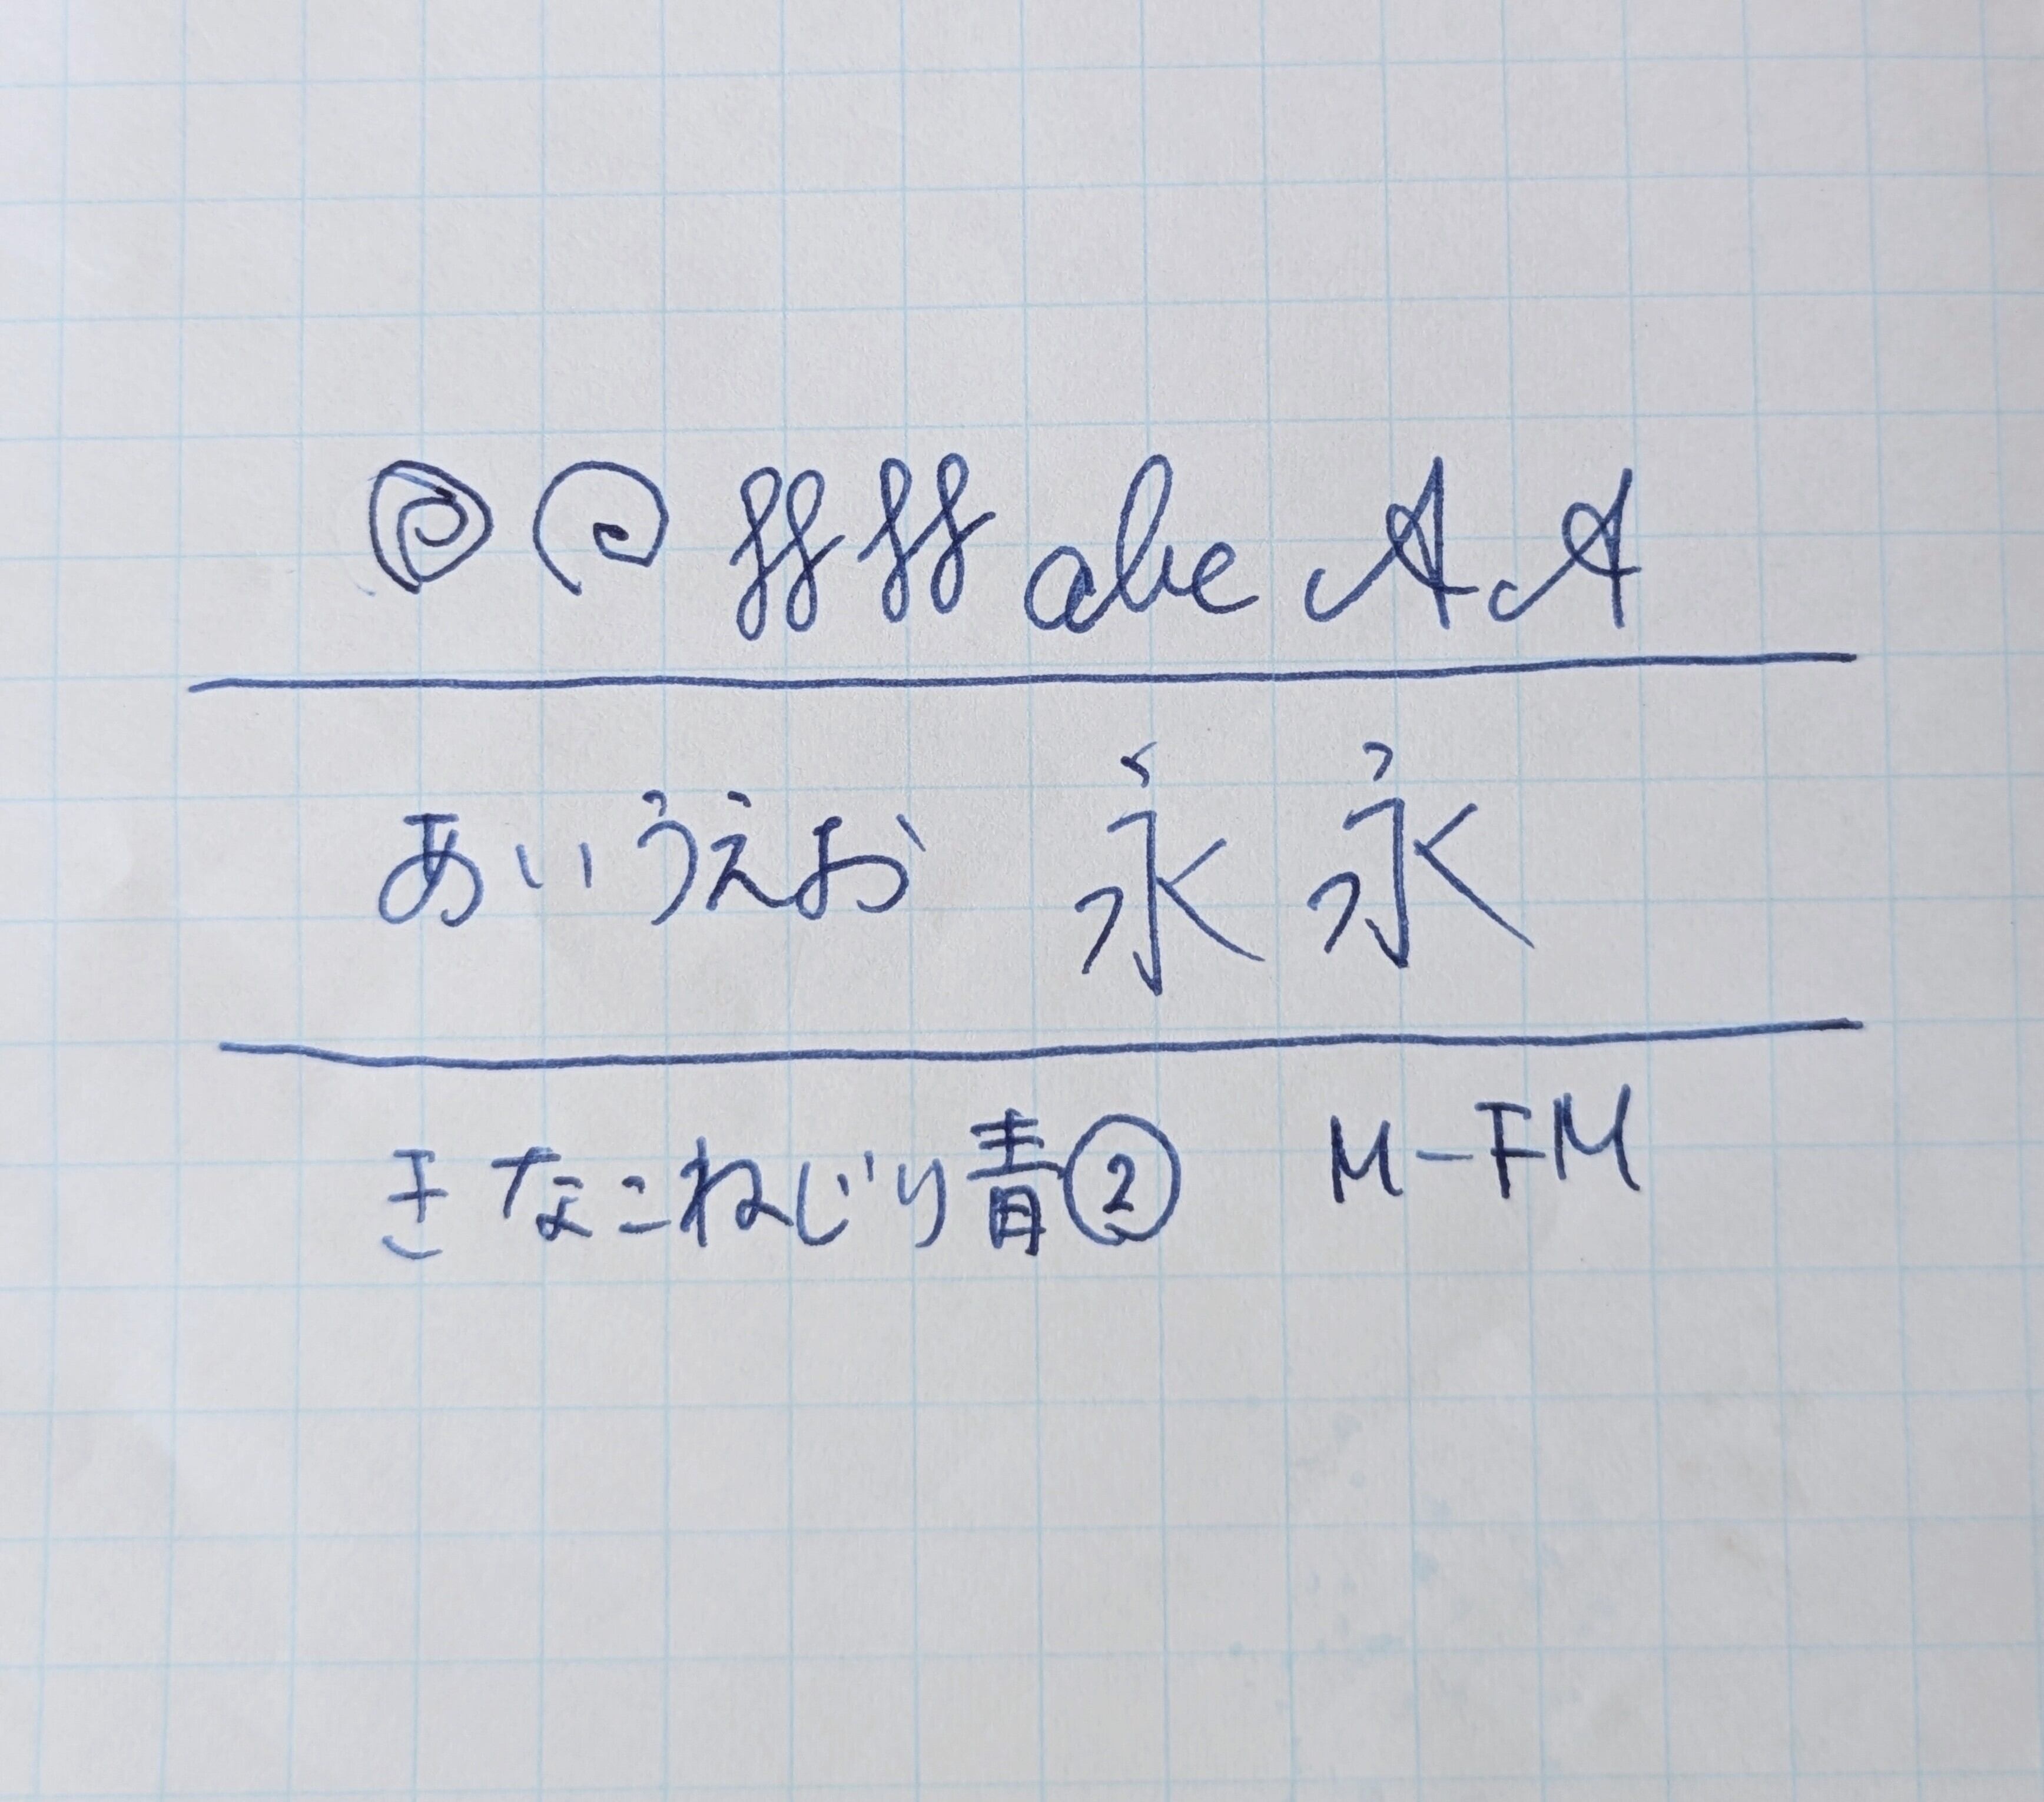 ffff abc A A
あいうえお 永 永
きなこねじり青② M-FM